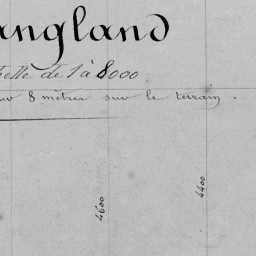 angland
elle de 1 à 8000
8 mètres sur le terrain.
4600
4400